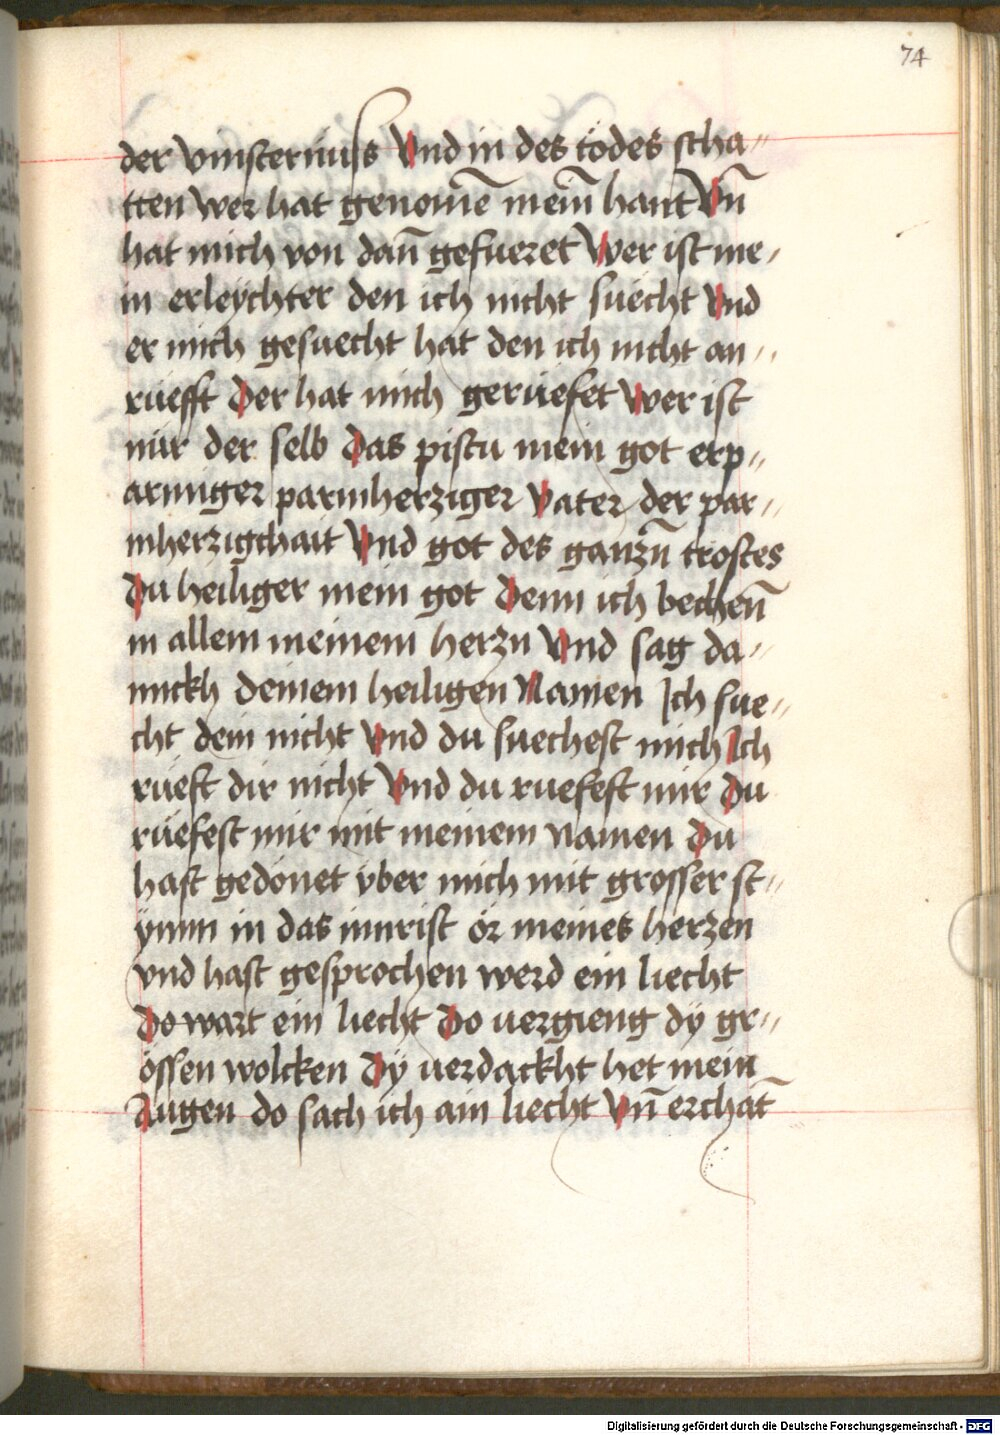 74
der vinsternuss Vnd in des todes scha„
tten wer hat genome̅ mein̅ hant Vn̅
hat mich von dan̅ gefueret Wer ist me„
in erleÿchter den ich nicht suecht Vnd
er mich gesuecht hat den ich nicht an„
rüefft Der hat mich gerüefet Wer ist
nür der selb Das pistu mein got erp„
armiger parmherziger Vater der par„
mherzigchait Vnd got des ganzn̅ trostes
Du heiliger mein got Denn ich bechen̅
in allem meinem herzn Vnd sag da„
nnckh deinem heiligen Namen Ich sue„
cht dein nicht Vnd du suechest mich Ich
rüeft dir nicht Vnd du ruefest mir Du
rüefest mir mit meinem namen Du
hast gedönet vber mich mit grosser st„
ÿmm in das innrist ör meines herzen
vnd hast gesprochen werd ein liecht
Do wart ein liecht Do uergieng dÿ gr„
össen wolcken Dÿ uerdackht het mein
Augen do sach ich ain liecht Vn̅ erchat̅
Digitalisierung gefördert durch die Deutsche Forschungsgemeinschaft - DFG